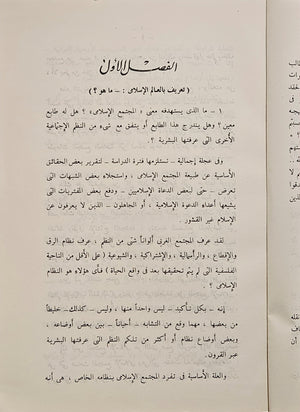 الفصل الأول
( تعريف بالعالم الإسلامى : — ما هو ؟ )
١ — ما الذى يستهدفه معنى « المجتمع الإسلامى » ؟ هل له طابع
معين ؟ وهل يندرج هذا الطابع أو يتفق مع شىء من النظم الاجتماعية
الأخرى التى عرفتها البشرية ؟
وفى عجلة إجمالية — تستلزمها فترة الدراسة — لتقرير بعض الحقائق
الأساسية عن طبيعة المجتمع الإسلامى ، واستجلاء بعض الشبهات التى
تعرض — حتى لبعض الدعاة الإسلاميين — ودفع بعض المفتريات التى
يشيعها أعداء الدعوة الإسلامية ، أو الجاهلون — الذين لا يعرفون عن
الإسلام غير القشور .
لقد عرف المجتمع الغربى ألواناً شتى من النظم ، عرف نظام الرق
والإقطاع ، والرأسمالية ، والاشتراكية ، والشيوعية ( على الأقل من الناحية
الفلسفية التى لم يتم تحقيقها بعد فى واقع الحياة ) فأى هؤلاء هو النظام
الإسلامى ؟
إنه — بكل تأكيد — ليس واحداً منها ، وليس — كذلك — خليطاً
من بعضها ، مهما وقع من التشابه — أحياناً — بين بعض أوضاعه ،
وبعض أوضاع نظام أو أكثر من تلكم النظم التى عرفتها البشرية
عبر القرون .
والعلة الأساسية فى تفرد المجتمع الإسلامى بنظامه الخاص ، هى أنه